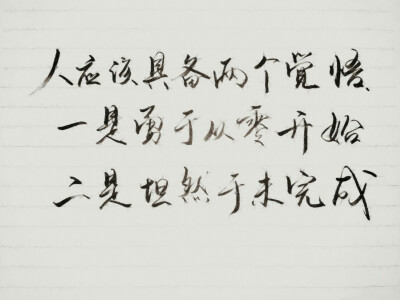 人应该具备两个觉悟
一是勇于从零开始
二是坦然于未完成